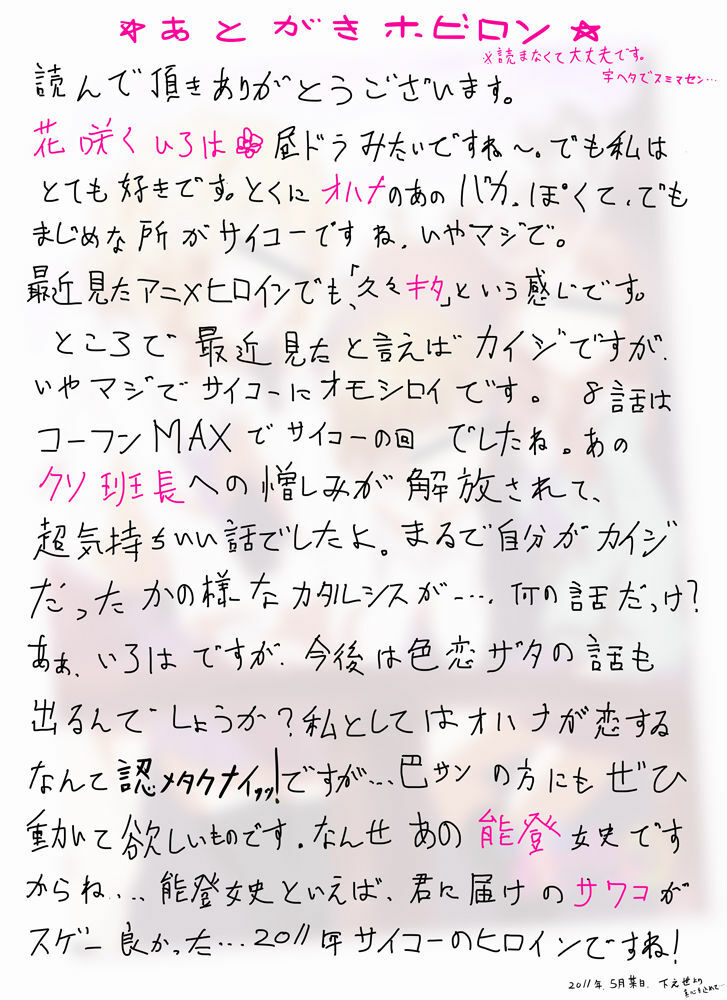 ☆あとがきホビロン☆
※読まなくて大丈夫です。
字ヘタでスミマセン…
読んで頂きありがとうございます。
花咲くいろは 昼ドラみたいですね〜。でも私は
とても好きです。とくにオハナのあのバカっぽくて、でも
まじめな所がサイコーですね。いやマジで。
最近見たアニメヒロインでも、「久々キタ」という感じです。
ところで最近見たと言えばカイジですが、
いやマジでサイコーにオモシロイです。 8話は
コーフンMAXでサイコーの回でしたね。あの
クソ班長への憎しみが解放されて、
超気持ちいい話でしたよ。まるで自分がカイジ
だったかの様なカタルシスが…、何の話だっけ?
あぁ、いろはですが、今後は色恋ザタの話も
出るんでしょうか?私としてはオハナが恋する
なんて認メタクナイッッ!ですが…巴サンの方にもぜひ
動いて欲しいものです。なんせあの能登女史です
からね…、能登女史といえば、君に届けのサワコが
スゲー良かった…2011年サイコーのヒロインですね!
2011年.5月某日.